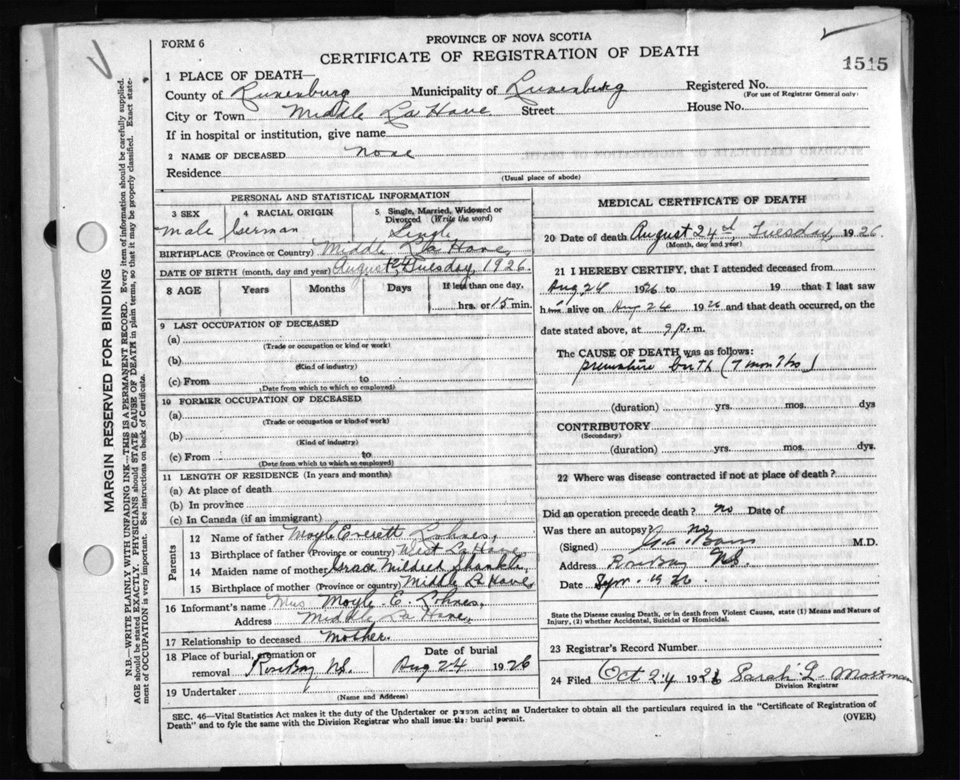 FORM 6
PROVINCE OF NOVA SCOTIA
CERTIFICATE OF REGISTRATION OF DEATH
1515
1 PLACE OF DEATH—
County of Lunenburg Municipality of Lunenburg Registered No.
(For use of Registrar General only)
City or Town Middle La Have Street House No.
If in hospital or institution, give name
2 NAME OF DECEASED None
Residence
(Usual place of abode)
PERSONAL AND STATISTICAL INFORMATION
3 SEX male
4 RACIAL ORIGIN German
5 Single, Married, Widowed or Divorced (Write the word) Single
BIRTHPLACE (Province or Country) Middle La Have,
DATE OF BIRTH (month, day and year) August 24 Tuesday, 1926.
8 AGE Years Months Days If less than one day, hrs. or 15 min.
9 LAST OCCUPATION OF DECEASED
(a)
(Trade or occupation or kind or work)
(b)
(Kind of industry)
(c) From to
(Date from which to which so employed)
10 FORMER OCCUPATION OF DECEASED
(a)
(Trade or occupation or kind of work)
(b)
(Kind of industry)
(c) From to
(Date from which to which so employed)
11 LENGTH OF RESIDENCE (In years and months)
(a) At place of death
(b) In province
(c) In Canada (if an immigrant)
Parents
12 Name of father Moyle Everett Lohnes,
13 Birthplace of father (Province or country) West La Have
14 Maiden name of mother Grace Mildred Shankle,
15 Birthplace of mother (Province or country) Middle La Have
16 Informant's name Mrs Moyle. E. Lohnes,
Address Middle La Have,
17 Relationship to deceased Mother.
18 Place of burial, cremation or removal Rose Bay N.S. Date of burial Aug 24 1926
19 Undertaker
(Name and Address)
MEDICAL CERTIFICATE OF DEATH
20 Date of death August 24th, Tuesday, 1926.
(Month, day and year)
21 I HEREBY CERTIFY, that I attended deceased from
Aug 24 1926 to 19 that I last saw
h alive on Aug 24 1926 and that death occurred, on the
date stated above, at 9 p. m.
The CAUSE OF DEATH was as follows:
premature birth (7 months)
(duration) yrs. mos. dys
CONTRIBUTORY
(Secondary)
(duration) yrs. mos. dys.
22 Where was disease contracted if not at place of death?
Did an operation precede death? no Date of
Was there an autopsy? No
(Signed) M.D.
Address Rose Bay N.S.
Date 1926.
State the Disease causing Death, or in death from Violent Causes, state (1) Means and Nature of
Injury, (2) whether Accidental, Suicidal or Homicidal.
23 Registrar's Record Number
24 Filed Oct 24 1926 Sarah L. Mossman
Division Registrar
SEC. 46—Vital Statistics Act makes it the duty of the Undertaker or person acting as Undertaker to obtain all the particulars required in the "Certificate of Registration of
Death" and to fyle the same with the Division Registrar who shall issue the burial permit.
(OVER)
MARGIN RESERVED FOR BINDING
N.B.—WRITE PLAINLY WITH UNFADING INK—THIS IS A PERMANENT RECORD. Every item of information should be carefully supplied.
AGE should be stated EXACTLY. PHYSICIANS should STATE CAUSE OF DEATH in plain terms, so that it may be properly classified. Exact state-
ment of OCCUPATION is very important. See instructions on back of Certificate.